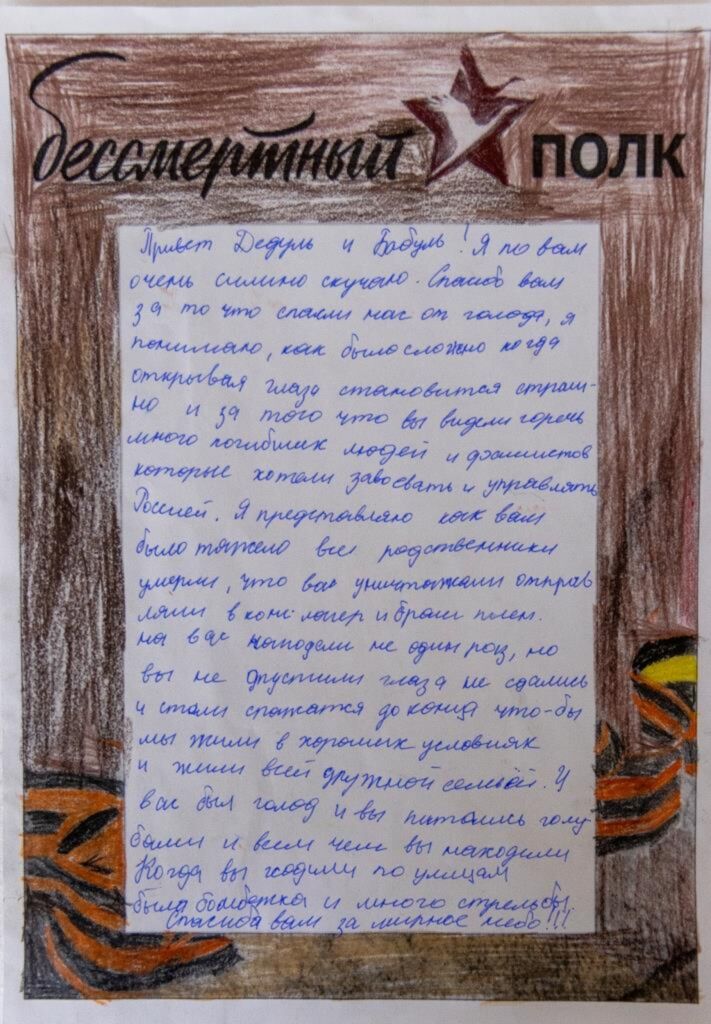 бессмертный полк
Привет Дедуль и Бабуль! Я по вам
очень силино скучаю. Спасибо вам
за то что спасли нас от голода, я
понимаю, как было сложно когда
открывая глаза становится страш-
но и за того что вы видели горечь
много погибших людей и фашистов
которые хотели завоевать и управлять
Россией. Я представляю как вам
было тяжело все родственники
умерли, что вас уничтажали отправ
ляли в конслагерь и брали плен.
на вас нападели не один раз, но
вы не опустили глаза не сдались
и стали сражатся до конца что-бы
мы жили в хороших условиях
и жили всей дружной семьёй. У
вас был голод и вы питались голу
бями и всем чем вы находили
Когда вы ходили по улицам
была бомбёжка и много стрельбы.
Спасиба вам за мирное небо!!!